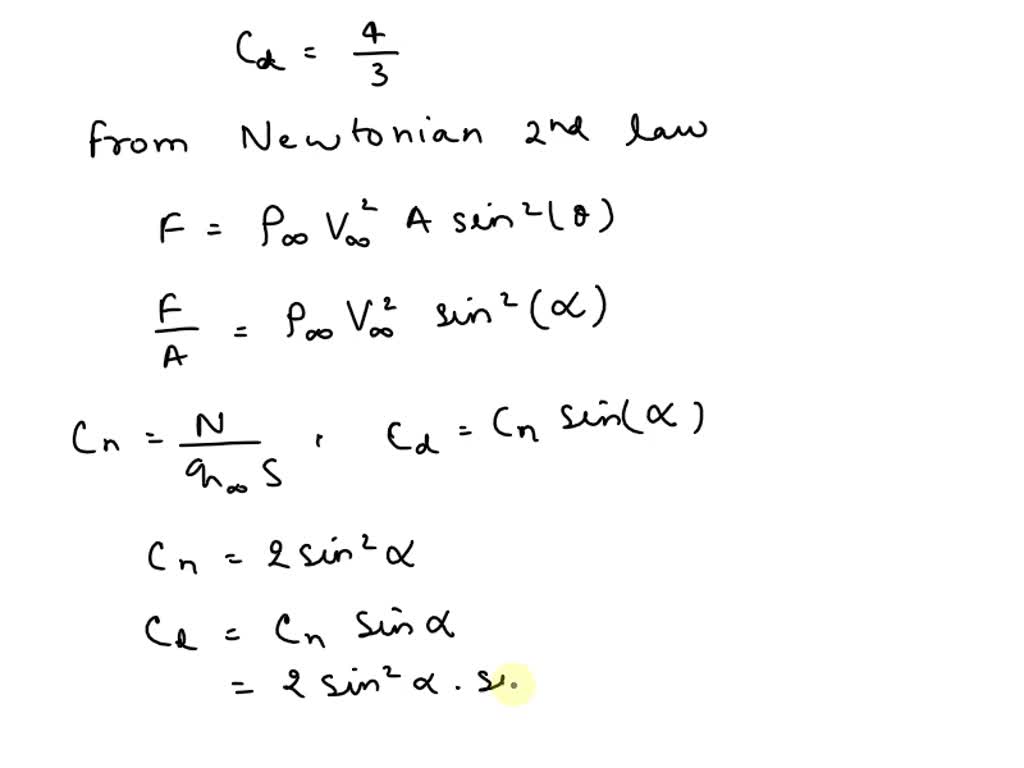 Cd = 4/3
from Newtonian 2nd law
F = ρ∞ V∞² A sin²(θ)
F/A = ρ∞ V∞² sin²(α)
Cn = N/q∞ S , Cd = Cn sin(α)
Cn = 2 sin² α
Cd = Cn sin α
= 2 sin² α . si